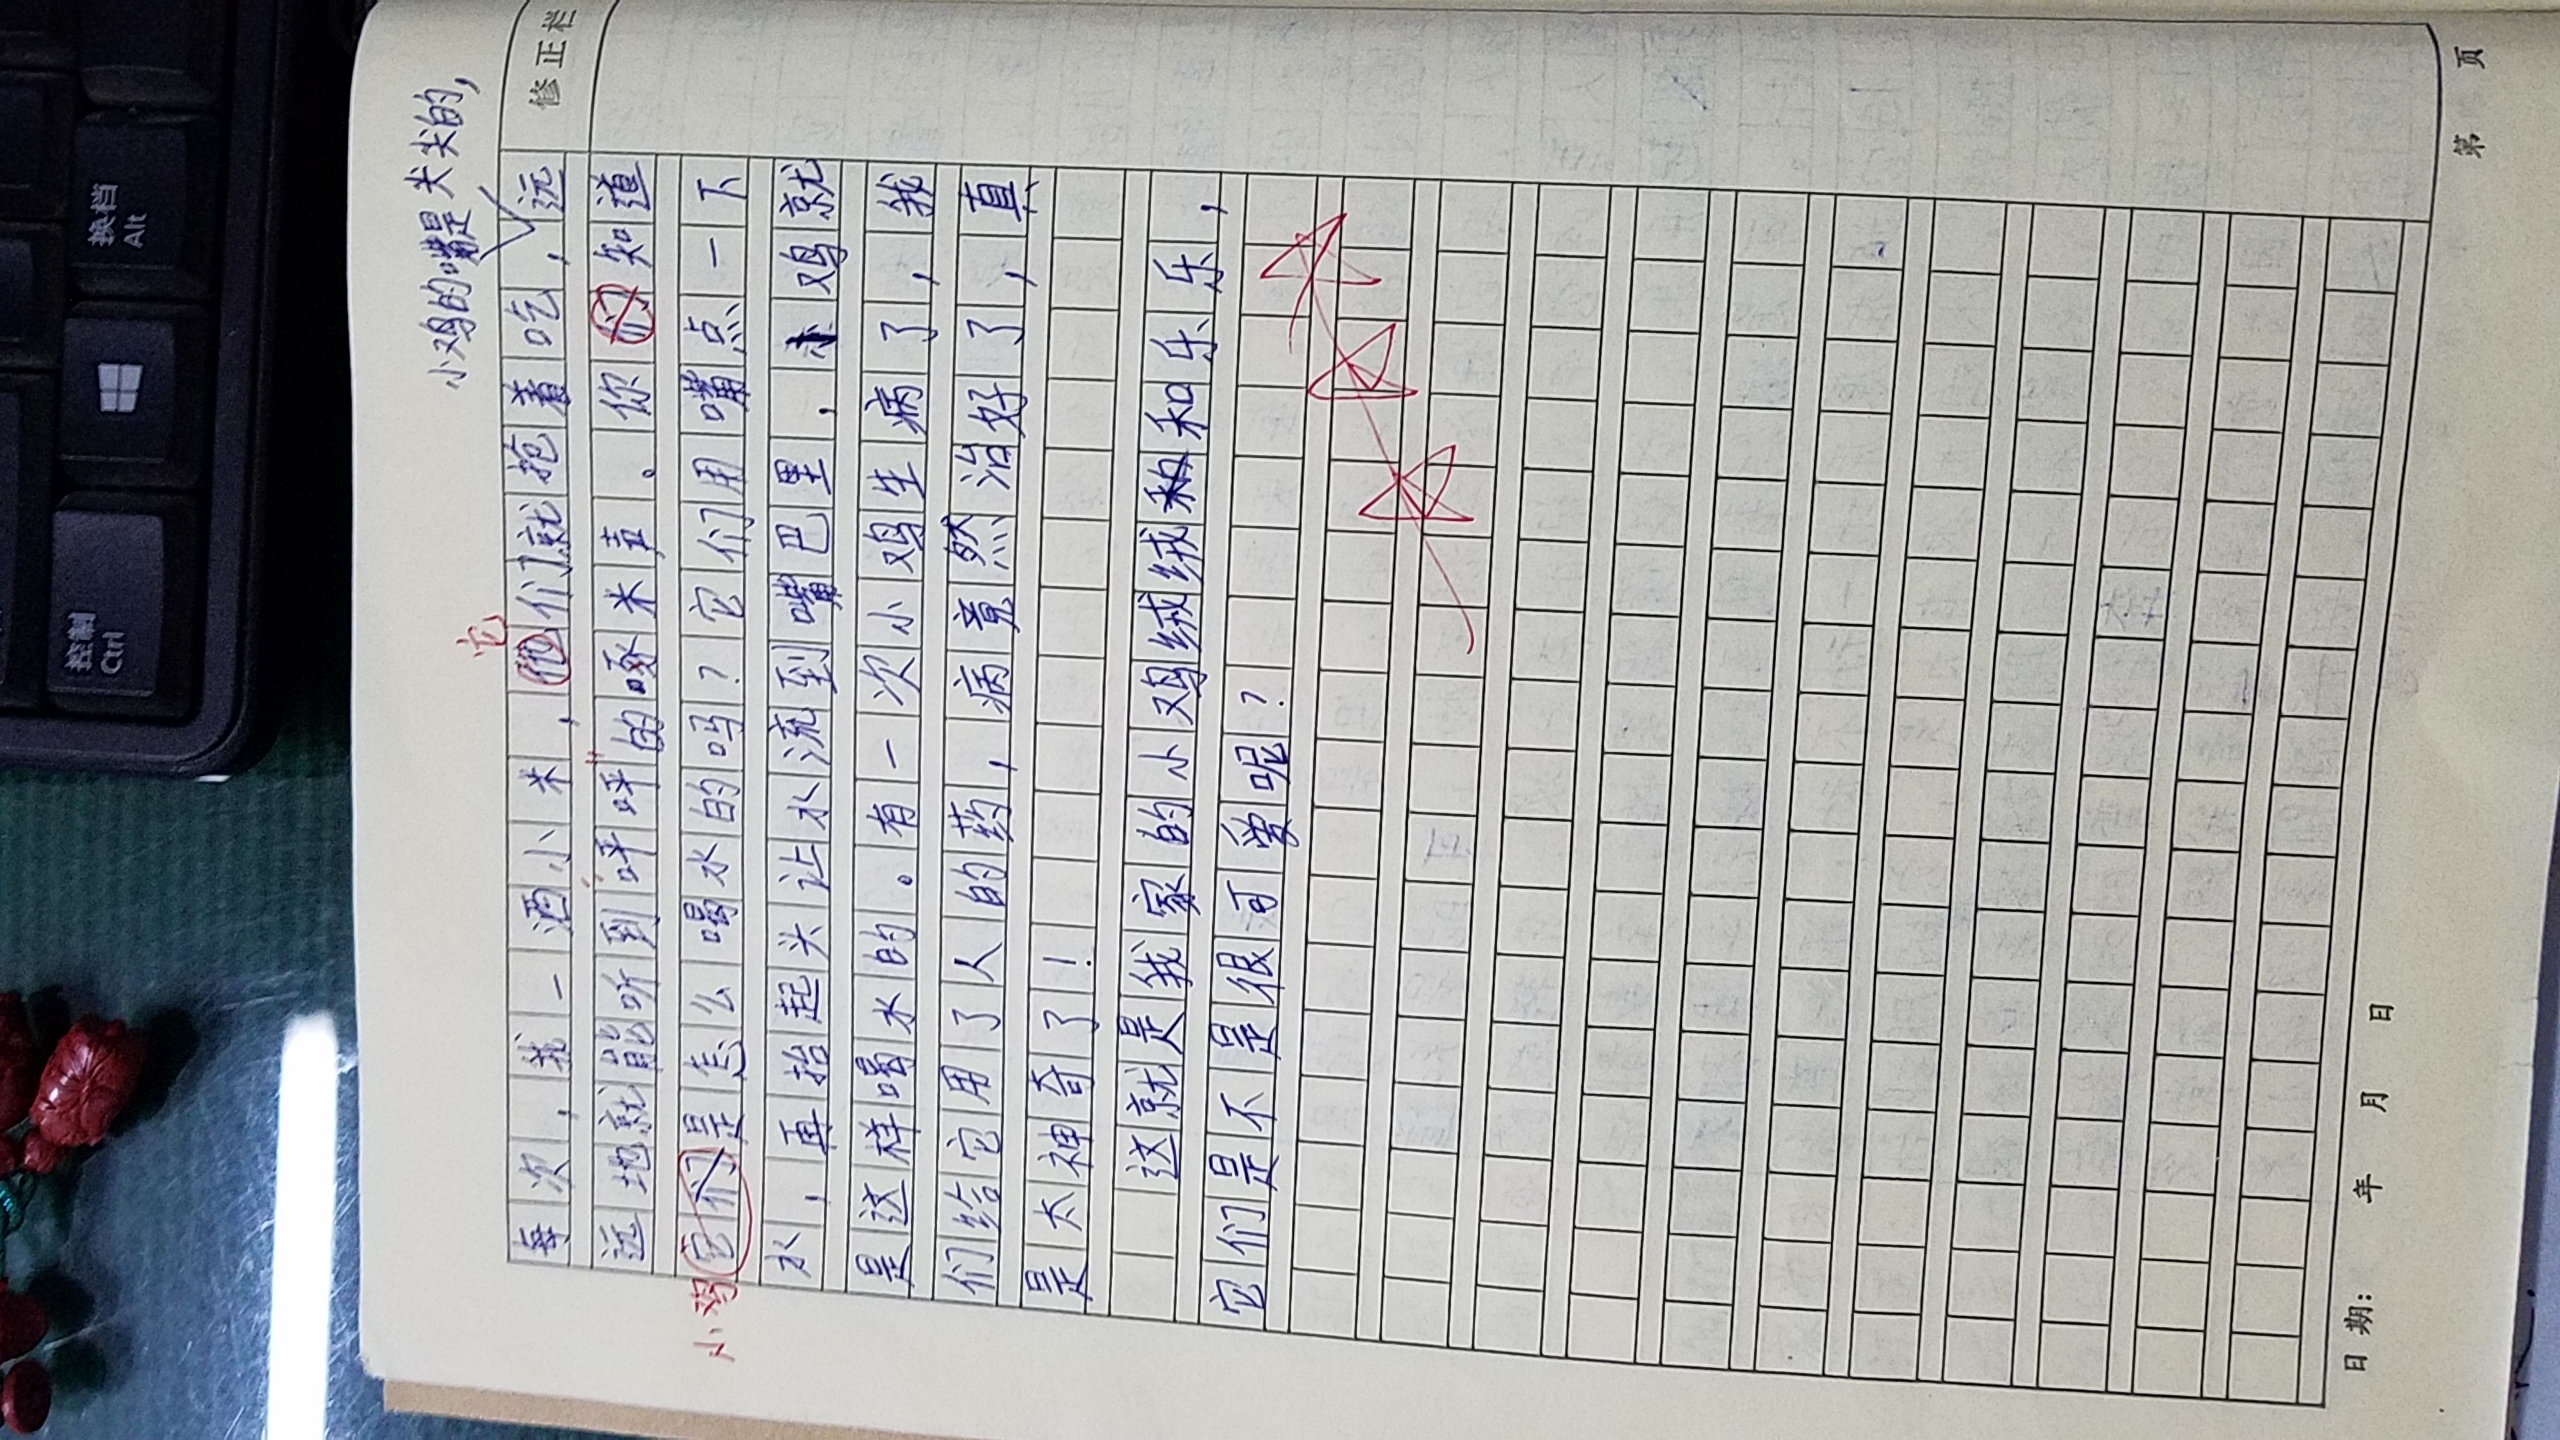 小鸡的嘴是尖尖的，
修正栏
它
每次，我一洒小米，他们就抢着吃，远
远地就能听到“呯呯”的啄米声。你们知道
小鸡
它们是怎么喝水的吗？它们用嘴点一下
水，再抬起头让水流到嘴巴里，小鸡就
是这样喝水的。有一次小鸡生病了，我
们给它用了人的药，病竟然治好了，真
是太神奇了！
这就是我家的小鸡绒绒和乐乐，
它们是不是很可爱呢？
日期： 年 月 日
第 页
控制
Ctrl
换档
Alt